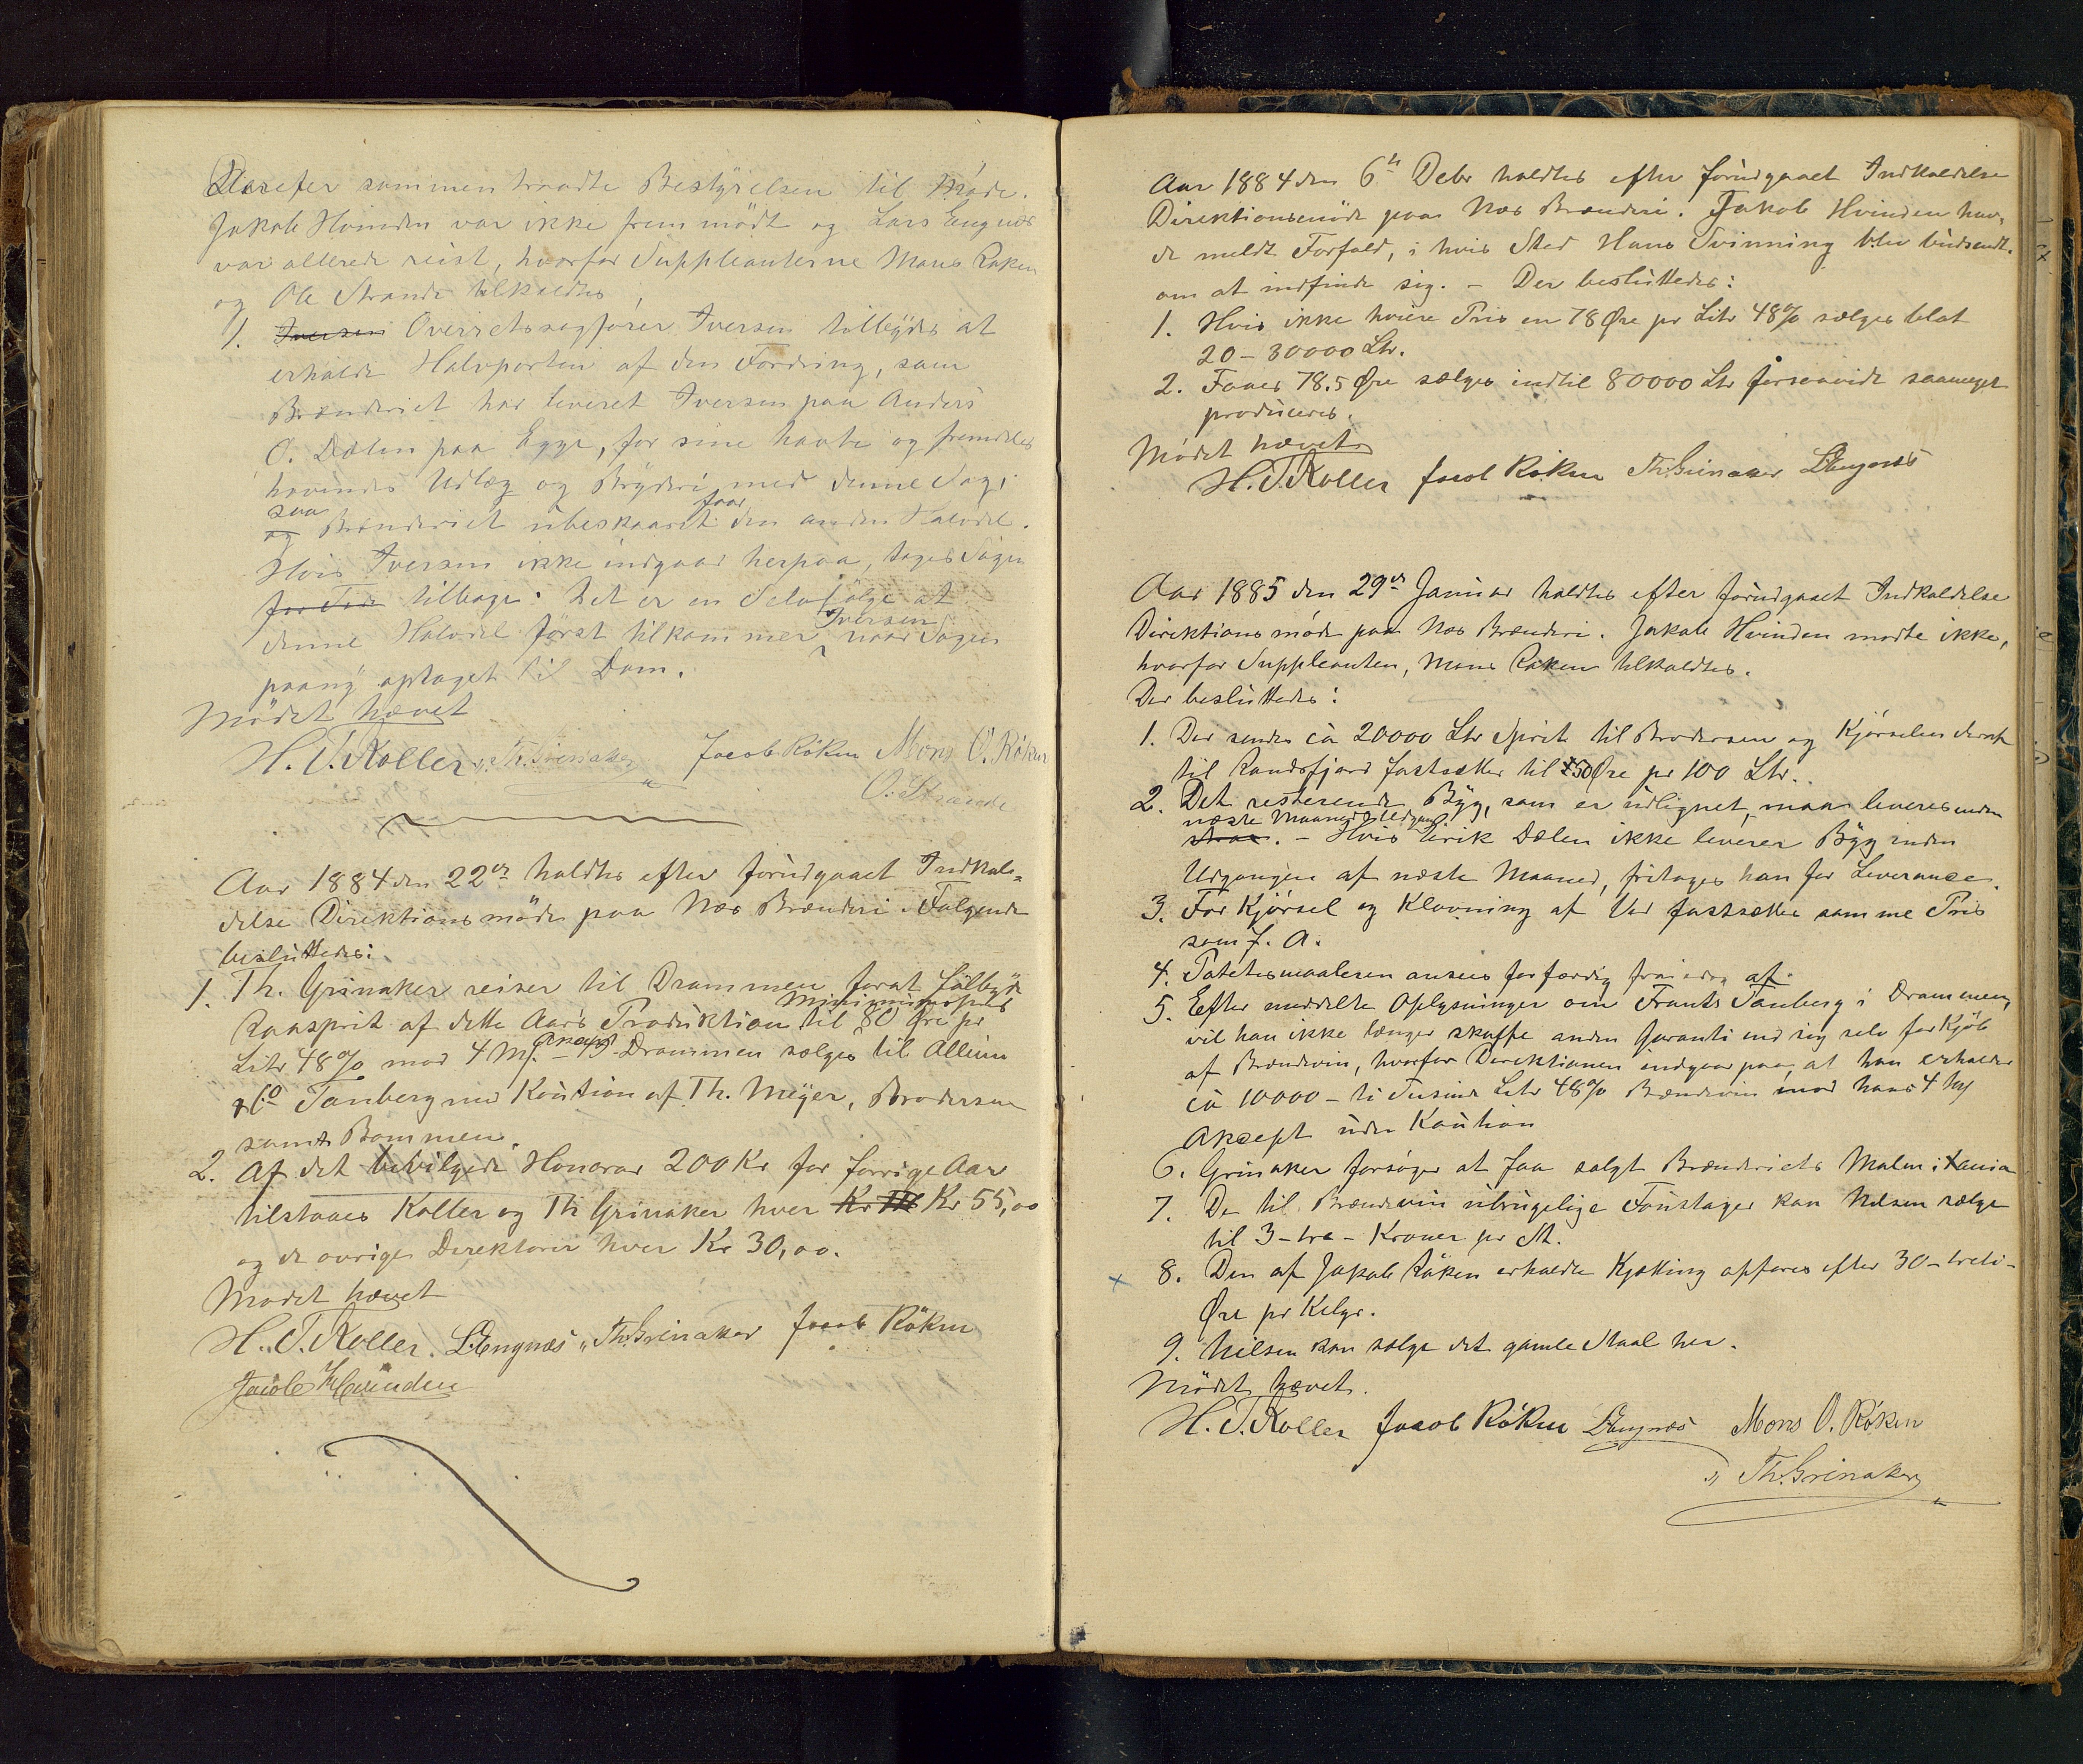 Derefter sammentraadte Bestyrelsen til Møde.
Jakob Hvinden var ikke fremmødt og Lars Engnæs
var allerede reist, hvorfor Suppleanterne Mons Røken
og Ole Strande tilkaldtes.
1. Iversen Overretssagfører Iversen tilbydes at
erholde Halvparten af den Fordring, som
Brænderiet har leveret Iversen paa Anders
O. Dælen paa Egge, for sine havte og fremdeles
havendes Udlæg og Bryderi med denne Sag;
saa faar
og Brænderiet ubeskaaret den anden Halvdel.
Hvis Iversen ikke indgaar herpaa, tages Sagen
tilbage. Det er en Selvfölge at
Iversen
denne Halvdel først tilkommer naar Sagen
paany optaget til Dom.
Mödet hævet
H. T. Koller Th. Grinaker Jacob Röken Mons O. Röken
O. Strande
Aar 1884 den 22de holdtes efter forudgaaet Indkal-
delse Direktionsmöde paa Næs Brænderi. Følgende
besluttedes:
1. Th. Grinaker reiser til Drammen forat falbyde
Minimumspris
Raasprit af dette Aars Produktion til 80 Øre pr
Aksept
Litr 48% mod 4 M. Drammen sælges til Allum
& Co Tanberg med Kaution af Th. Meyer, Brodersen
samt Bommen.
2. Af det bevilgede Honorar 200 Kr for forrige Aar
tilstaaes Koller og Th Grinaker hver Kr Kr 55,00
og de øvrige Direktører hver Kr 30,00.
Mødet hævet
H. T. Koller. L. Engnæs Th. Grinaker Jacob Röken
Jacob Hvinden
Aar 1884 den 6te Debr holdtes efter forudgaaet Indkaldelse
Direktionsmöde paa Næs Brænderi. Jakob Hvinden hav-
de meldt Forfald, i hvis Sted Hans Svinning blev budsendt
om at indfinde sig. - Der besluttedes:
1. Hvis ikke høiere Pris en 78 Øre pr Litr 48% sælges blot
20 - 30000 Ltr.
2. Faaes 78.5 Øre sælges indtil 80000 Ltr forsaavidt saameget
produceres.
Mödet hævet
H. T. Koller Jacob Röken Th. Grinaker L. Engnæs
Aar 1885 den 29de Januar holdtes efter forudgaaet Indkaldelse
Direktionsmøde paa Næs Brænderi. Jakob Hvinden mødte ikke,
hvorfor Suppleanten, Mons Røken tilkaldtes.
Der besluttedes:
1. Der sendes ca 20000 Ltr Sprit til Brodersen og Kjørselen
til Randsfjord fastsættes til 50 Øre pr 100 Ltr.
2. Det resterende Byg, som er udlignet, maa leveres inden
næste Maaneds Udgang
. - Hvis Eirik Dælen ikke leverer Byg inden
Udgangen af næste Maaned, fritages han for Leverance.
3. For Kjørsel og Kløvning af Ved fastsættes samme Pris
som f. A.
4. Potetesmaaleren ansees forfærdig fra idag af.
5. Efter meddelte Oplysninger om Frants Tanberg i Drammen,
vil han ikke længer skaffe anden Garanti end sig selv for Kjøb
af Brændevin, hvorfor Direktionen indgaar paa, at han erholder
ca 10000 - ti Tusinde Litr 48% Brændevin mod hans 4
Aksept uden Kaution
6. Grinaker forsøger at faa solgt Brænderiets Malm i
7. De til Brændevin ubrugelige Foustager kan Nilsen sælge
til 3 - tre - Kroner pr St.
8. Den af Jakob Röken erholdte Kjætting opføres efter 30 - treti -
Øre pr Kilgr.
9. Nilsen kan sælge det gamle Staal her.
Mödet hævet.
H. T. Koller Jacob Röken L. Engnæs Mons O. Röken
Th. Grinaker